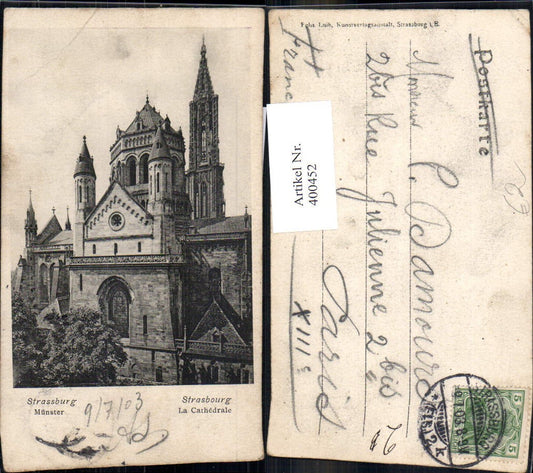 Strassburg
Münster
Strasbourg
La Cathédrale
9/7/03
Artikel Nr.
400452
Felix Luib, Kunstverlagsanstalt, Strassburg i. E.
Postkarte
Monsieur C. Damours
2 bis Rue Julienne 2 bis
Paris
XIII
5
5